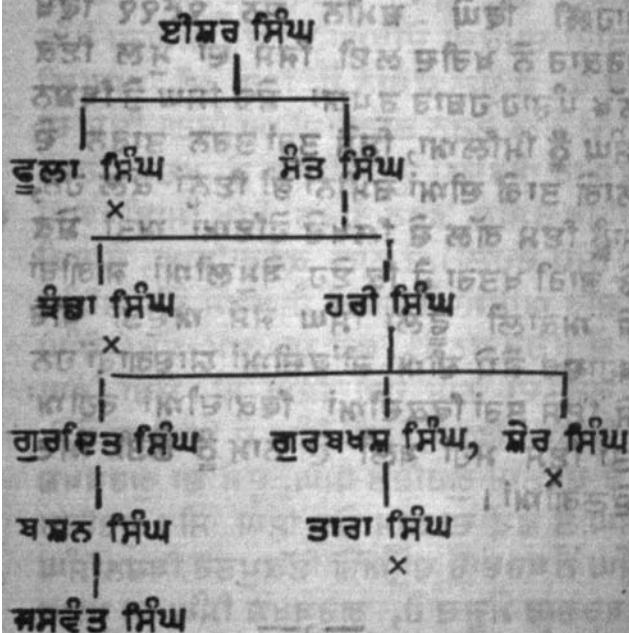 ਈਸ਼ਰ ਸਿੰਘ
ਫੂਲਾ ਸਿੰਘ ਸੰਤ ਸਿੰਘ
×
ਝੰਡਾ ਸਿੰਘ ਹਰੀ ਸਿੰਘ
×
ਗੁਰਦਿਤ ਸਿੰਘ ਗੁਰਬਖਸ਼ ਸਿੰਘ, ਸ਼ੇਰ ਸਿੰਘ
×
ਬਸ਼ਨ ਸਿੰਘ ਤਾਰਾ ਸਿੰਘ
×
ਜਸਵੰਤ ਸਿੰਘ